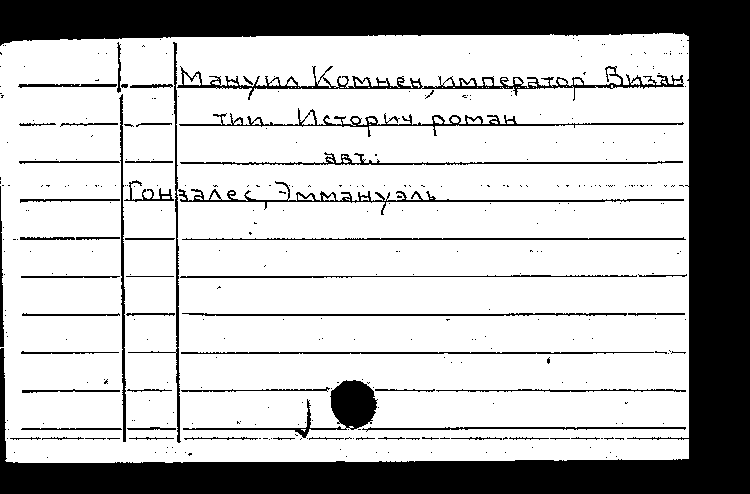 Мануил Комнен, император Визан-
тии. Историч. роман
авт.:
Гонзалес, Эммануэль.